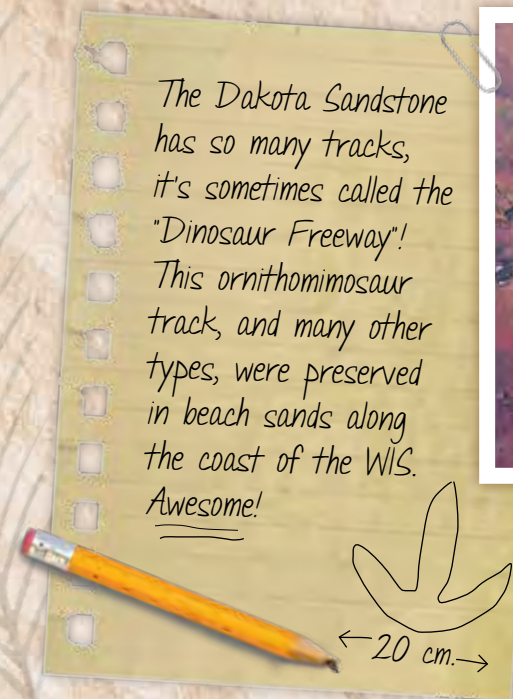 The Dakota Sandstone
has so many tracks,
it's sometimes called the
"Dinosaur Freeway"!
This ornithomimosaur
track, and many other
types, were preserved
in beach sands along
the coast of the WIS.
Awesome!
20 cm.